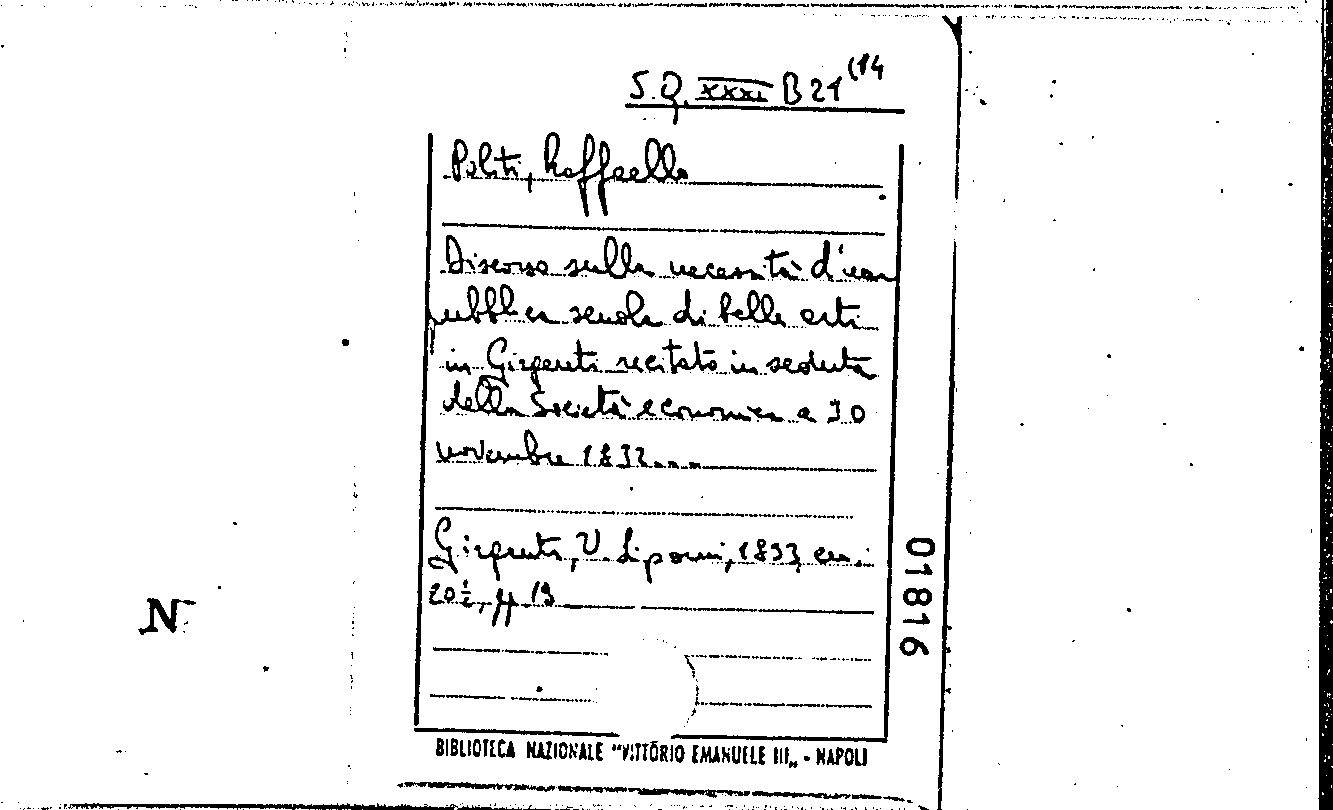 S.Q. XXXI B 21 (14
Politi, Raffaello
Discorso sulla necessità d'una
pubblica scuola di belle arti
in Girgenti recitato in seduta
della Società economica a 30
novembre 1832....
Girgenti, V. Lipomi, 1833, cm.
20½, pp. 19
01816
N
BIBLIOTECA NAZIONALE "VITTÓRIO EMANUELE III„ - NAPOLI